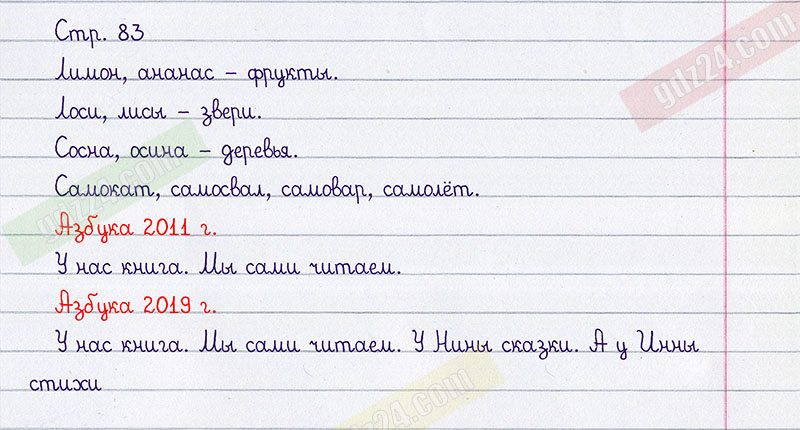 Стр. 83
Лимон, ананас – фрукты.
Лоси, лисы – звери.
Сосна, осина – деревья.
Самокат, самосвал, самовар, самолёт.
Азбука 2011 г.
У нас книга. Мы сами читаем.
Азбука 2019 г.
У нас книга. Мы сами читаем. У Нины сказки. А у Инны
стихи
gdz24.com
gdz24.com
gdz24.com